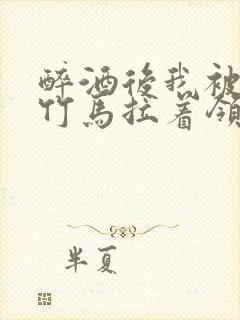 醉酒後我被
竹馬拉着領
半夏